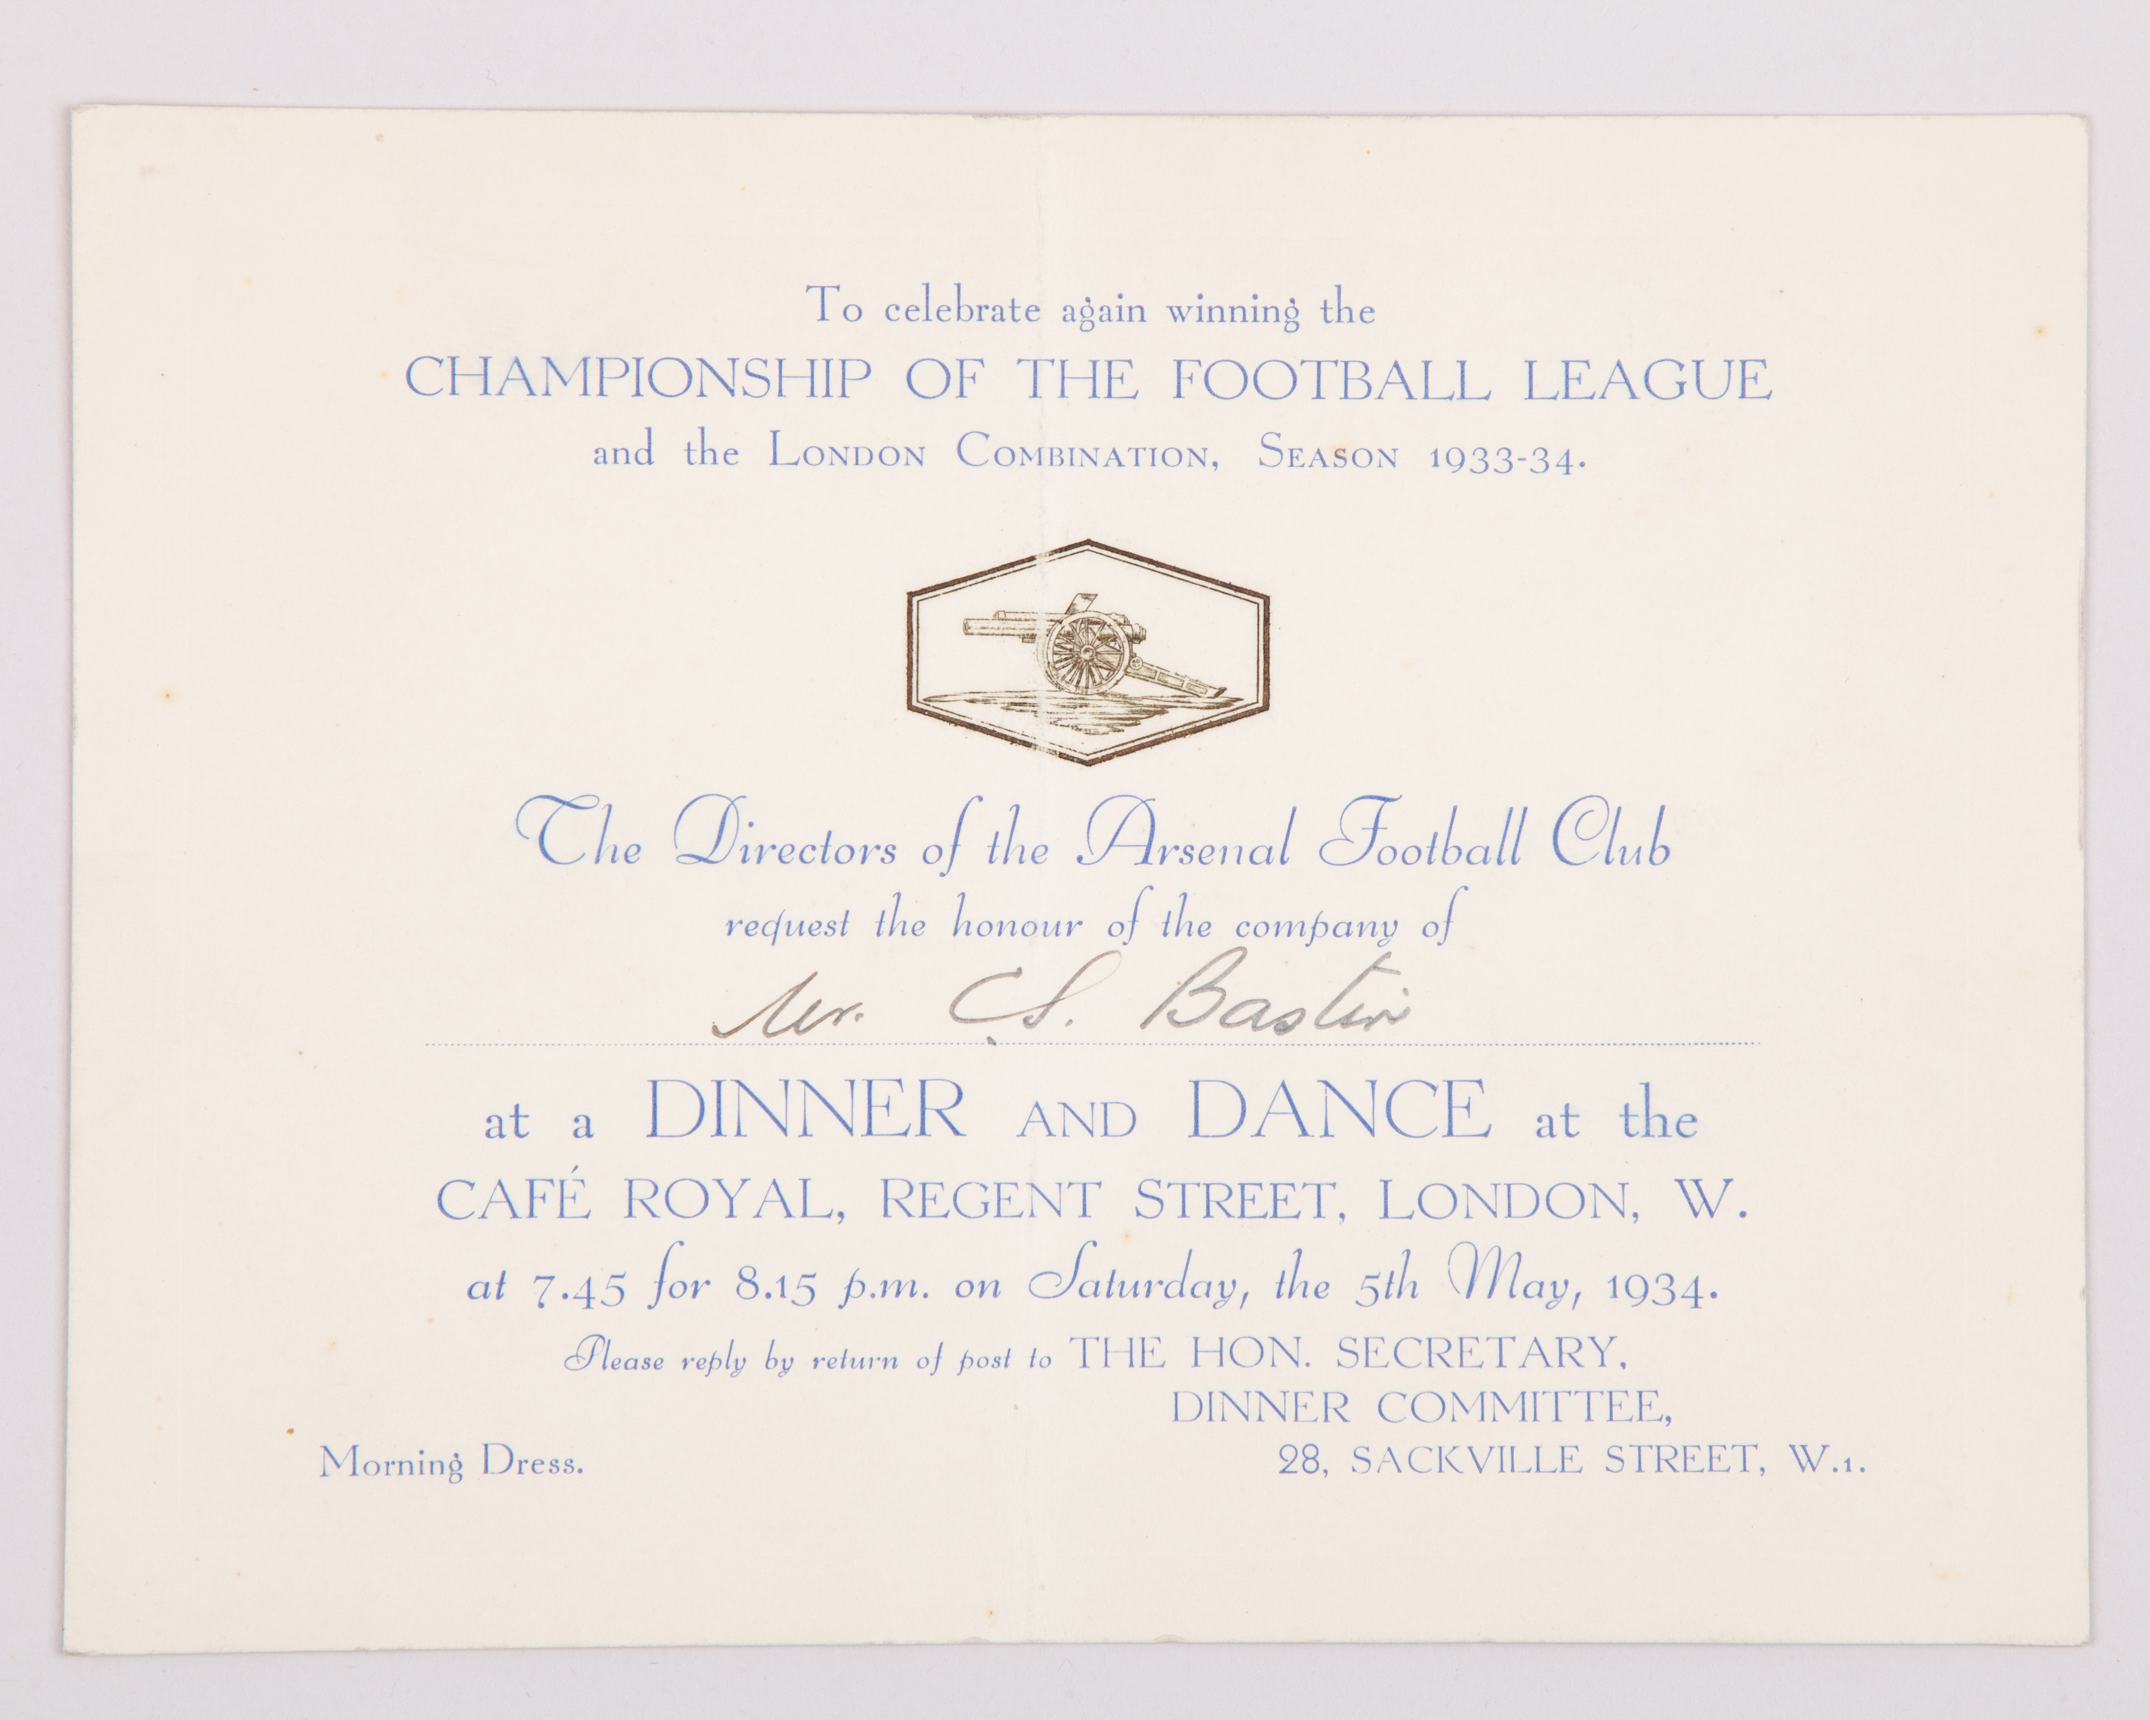 To celebrate again winning the
CHAMPIONSHIP OF THE FOOTBALL LEAGUE
and the LONDON COMBINATION, SEASON 1933-34.
The Directors of the Arsenal Football Club
request the honour of the company of
Mr. C.S. Bastin
at a DINNER AND DANCE at the
CAFÉ ROYAL, REGENT STREET, LONDON, W.
at 7.45 for 8.15 p.m. on Saturday, the 5th May, 1934.
Please reply by return of post to THE HON. SECRETARY,
DINNER COMMITTEE,
28, SACKVILLE STREET, W.1.
Morning Dress.